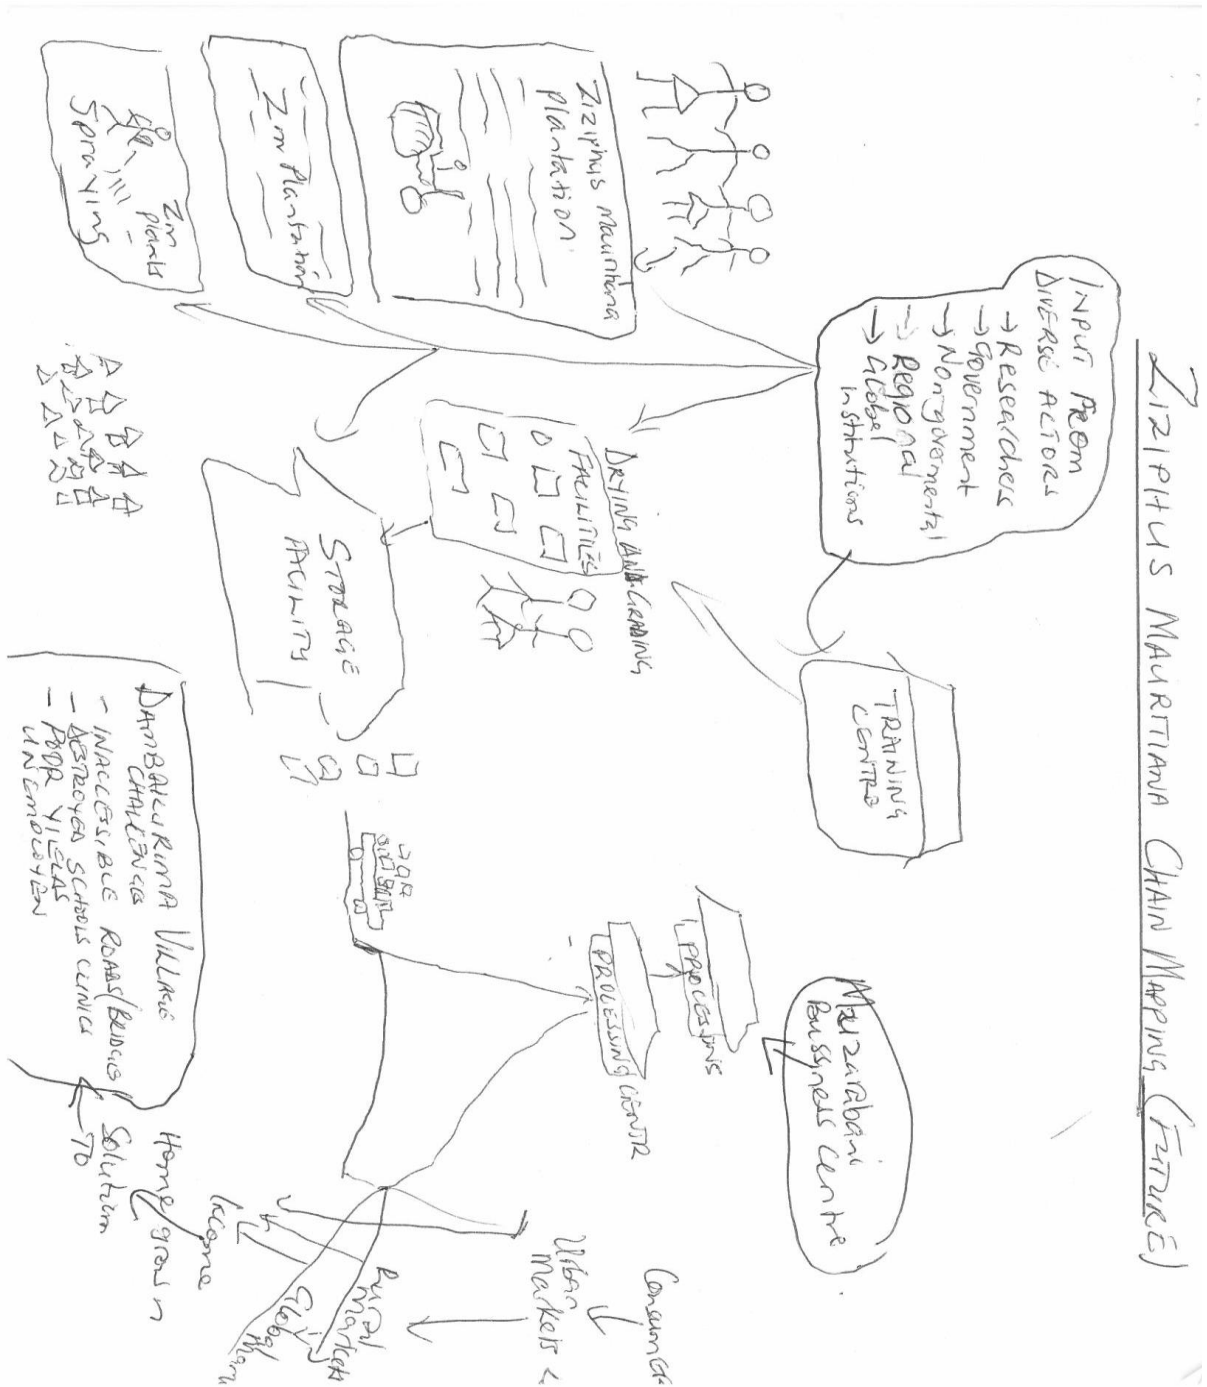 ZIZIPHUS MAURITIANA CHAIN MAPPING (FUTURE)
INPUT FROM
DIVERSE ACTORS
→ Researchers
→ Government
→ Nongovernmental
→ Regional
→ Global
institutions
TRAINING
CENTRE
Muzarabani
Bussyness centre
Ziziphus Mauritiana
plantation
Zm Plantation
Zm
plants
Spraying
DRYING AND GRADING
FACILITIES
STORAGE
FACILITY
PROCESSING
PROCESSING CENTR
Consumer
Urban
Markets
Rural
Markets
Global
Income
DAMBAKURIMA VILLAGE
CHALLENGES
- INACCESSIBLE ROADS/BRIDGES
- DESTROYED SCHOOLS CLINICS
- POOR YIELDS
Home grown
Solution
To